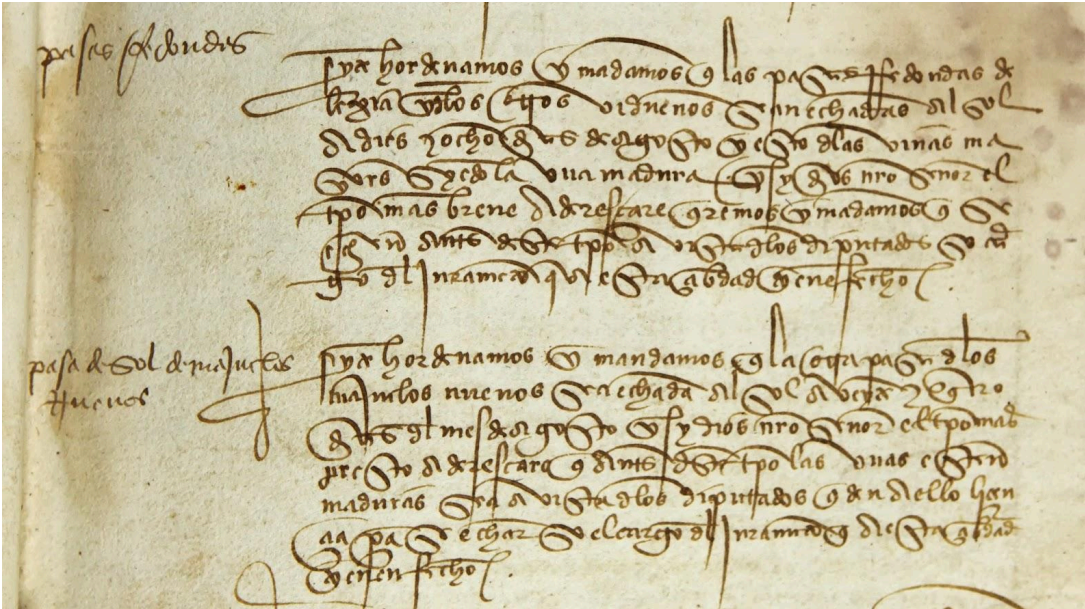 pasas rredondas
yten hordenamos y mandamos q las pasas rredondas de
lexia y de los viduenos sean echadas al sol
a dies y ocho dias de agosto y esto de las vinas ma
yores syendo la uva madura e sy dios nro senor el
tpo mas breve aderescare qremos y mandamos q se
antes deste tpo a vista de los diputados so car
go del juramento q a esta cibdad tienen fecho
pasa de sol de majuelos
nuevos
yten hordenamos y mandamos q la pasa de los
majuelos nuevos sea echada al sol a veynte y qtro
dias del mes de agosto y sy dios nro senor el tpo mas
presto aderescare q antes deste tpo las uvas esten
maduras sea a vista de los diputados q den a ello licen
cia pa se echar so el cargo del juramento q a esta cibdad
tienen fecho